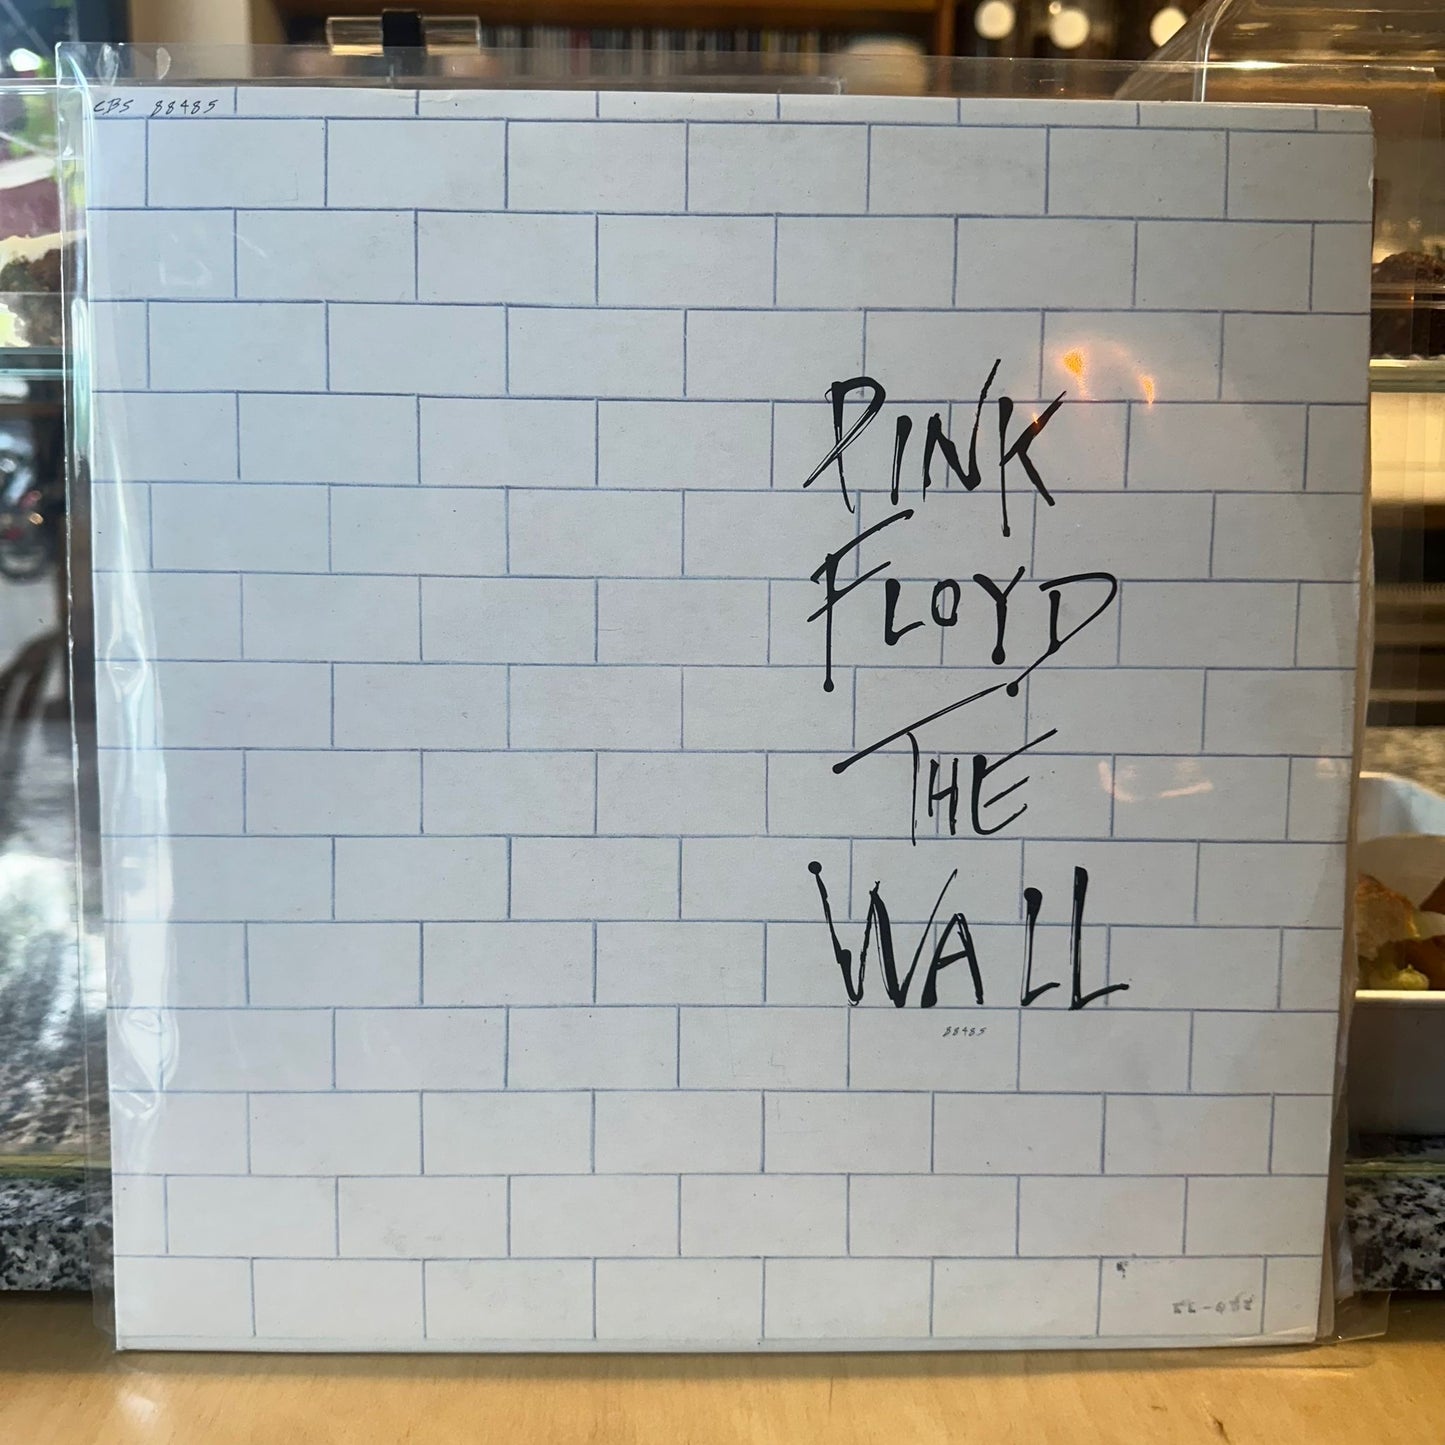 CBS 88485
PINK
FLOYD
THE
WALL
88485